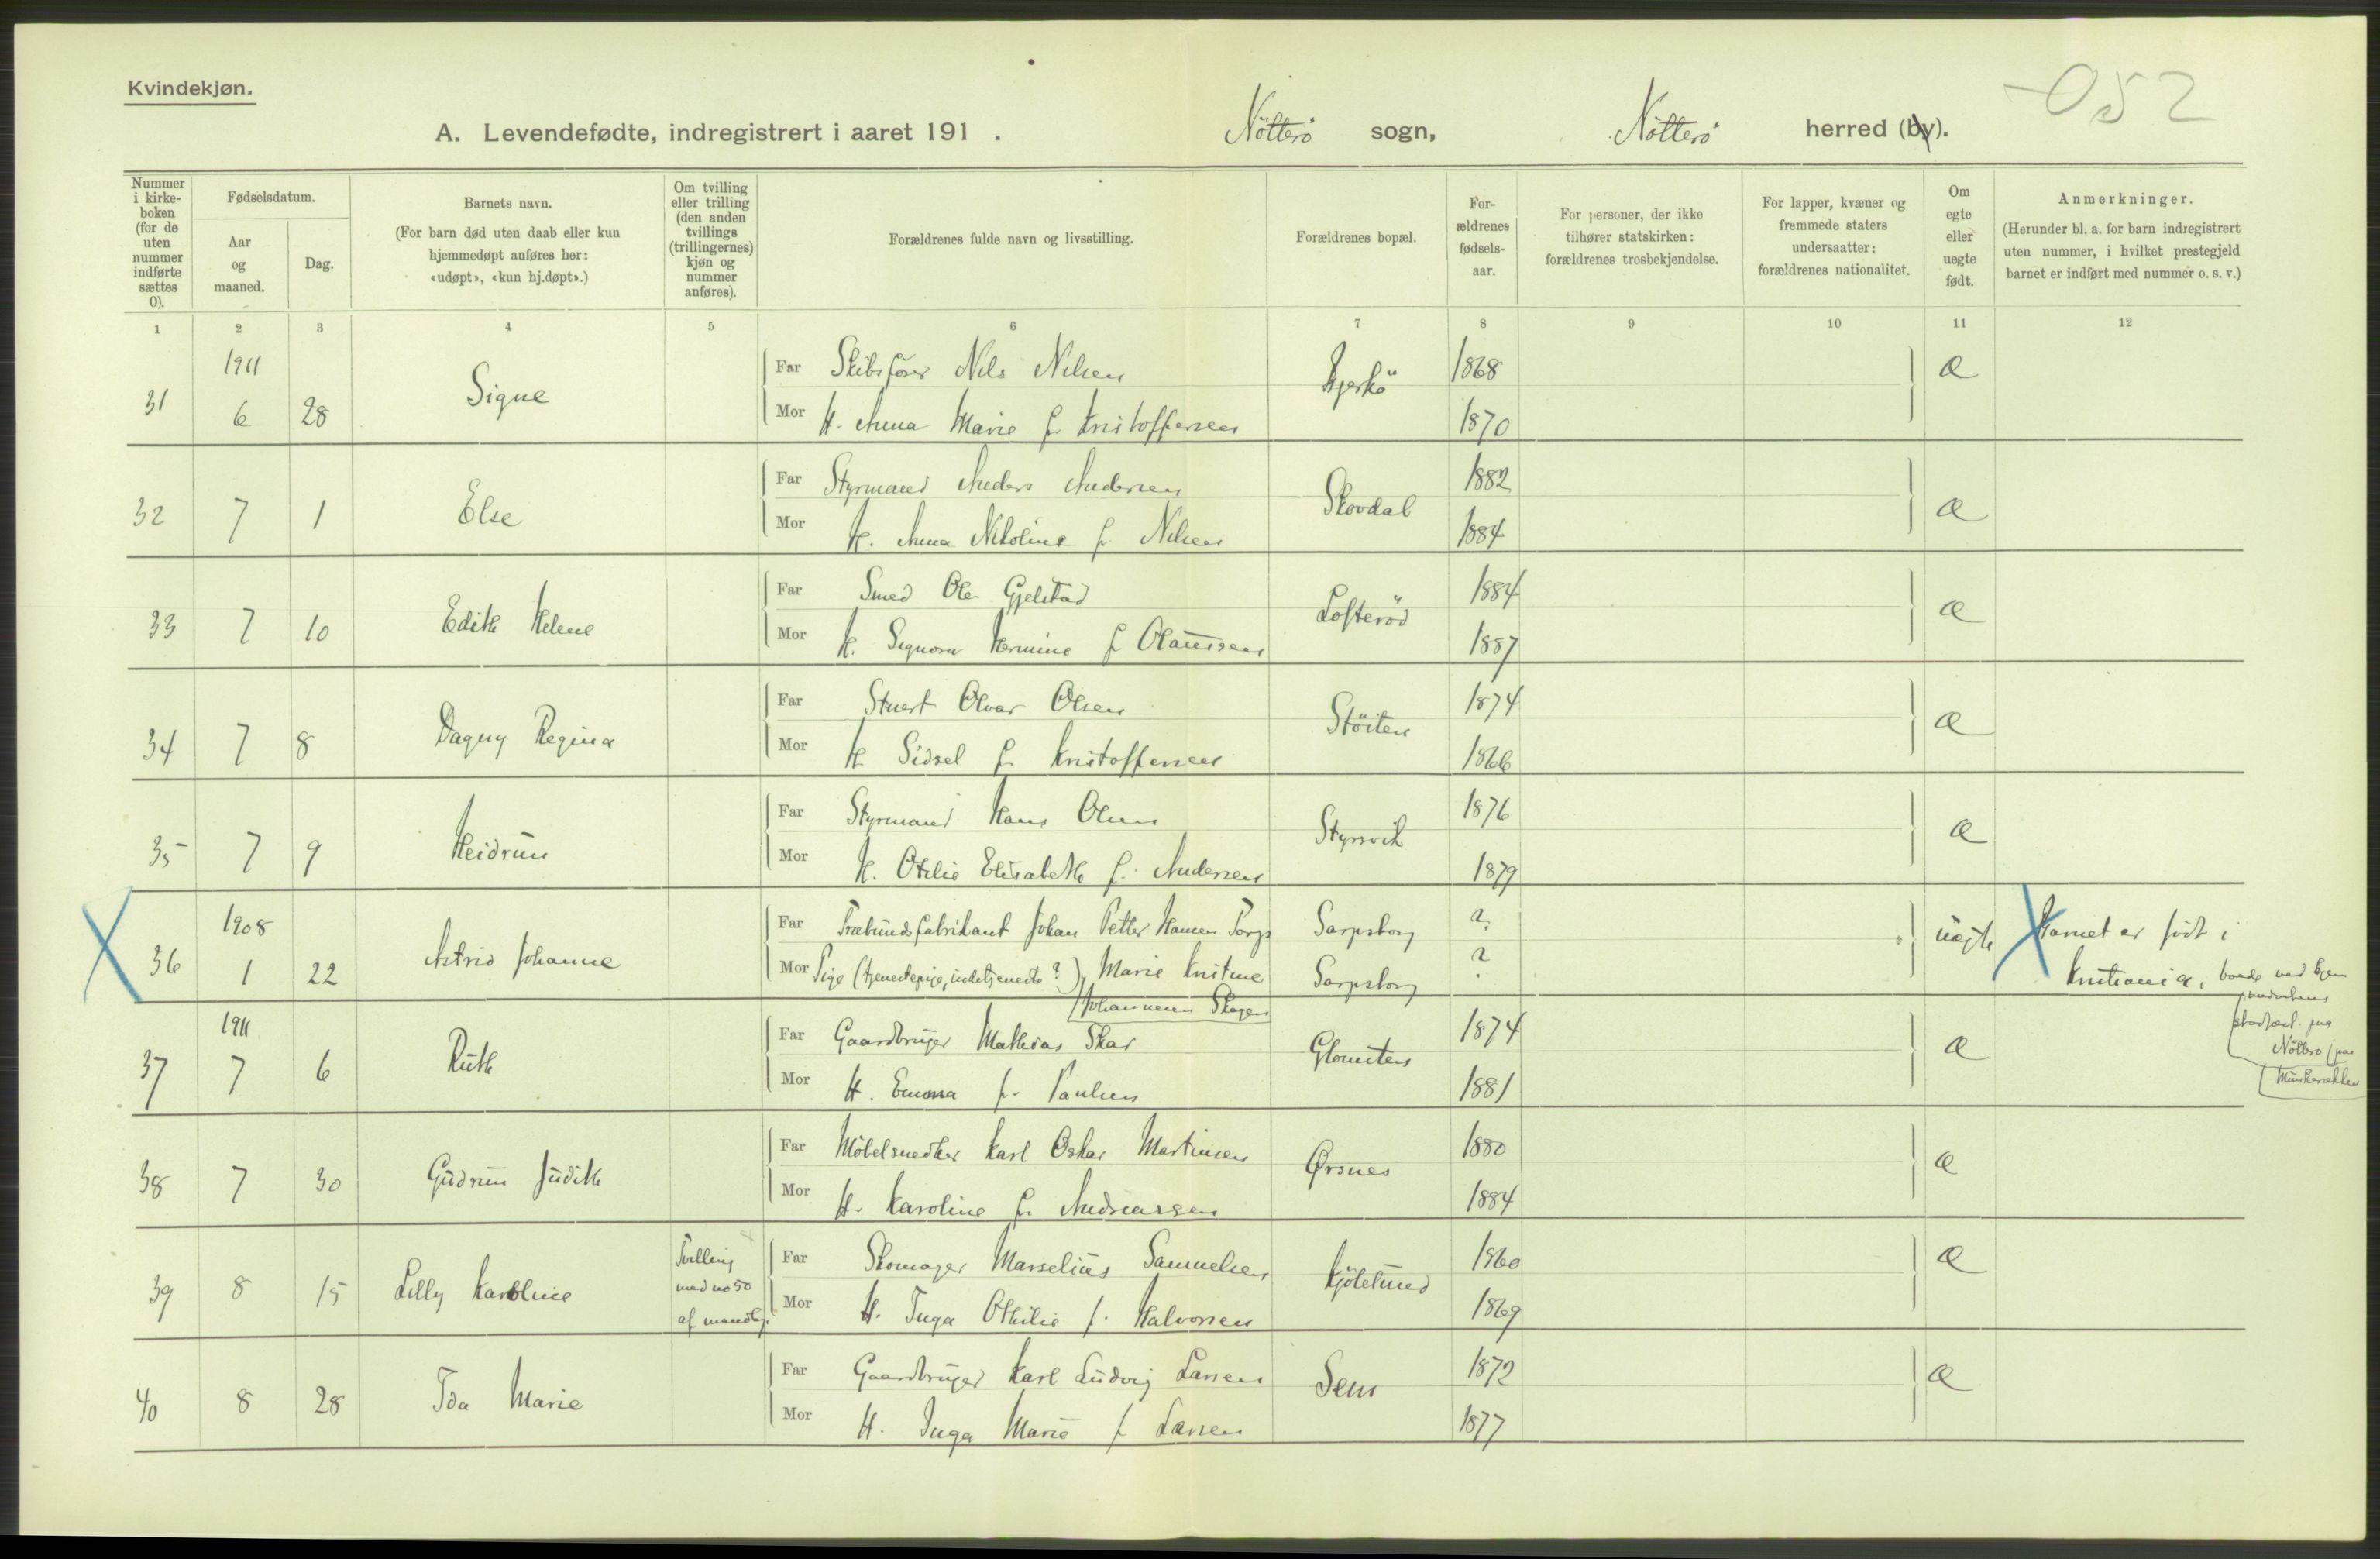 Kvindekjøn.
-052
A. Levendefødte, indregistrert i aaret 191 . Nötterö sogn, Nötterö herred (by).
Nummer i kirke-boken (for de uten nummer indførte sættes 0).
Fødselsdatum.
Aar og maaned.
Dag.
Barnets navn.
(For barn død uten daab eller kun hjemmedøpt anføres her: «udøpt», «kun hj.døpt».)
Om tvilling eller trilling (den anden tvillings (trillingernes) kjøn og nummer anføres).
Forældrenes fulde navn og livsstilling.
Forældrenes bopæl.
For-ældrenes fødsels-aar.
For personer, der ikke tilhører statskirken: forældrenes trosbekjendelse.
For lapper, kvæner og fremmede staters undersaatter: forældrenes nationalitet.
Om egte eller uegte født.
Anmerkninger.
(Herunder bl. a. for barn indregistrert uten nummer, i hvilket prestegjeld barnet er indført med nummer o. s. v.)
1 2 3 4 5 6 7 8 9 10 11 12
31 1911 6 28 Signe
Far Skibsfører Nils Nilsen Bjerkö 1868 æ
Mor H. Anna Marie f. Kristoffersen 1870
32 7 1 Else
Far Styrmand Anders Andersen Skovdal 1882 æ
Mor H. Anna Nikoline f. Nilsen 1884
33 7 10 Edith Helene
Far Smed Ole Gjelstad Lofteröd 1884 æ
Mor H. Signora Hermine f. Olaussen 1887
34 7 8 Dagny Regina
Far Stuert Olvar Olsen Stöiten 1874 æ
Mor H. Sidsel f. Kristoffersen 1866
35 7 9 Heidrun
Far Styrmand Hans Olsen Styrsvik 1876 æ
Mor H. Otilie Elisabeth f. Andersen 1879
36 1908 1 22 Astrid Johanne
Far Træbundsfabrikant Johan Petter Hansen Torp Sarpsborg ? uegte Barnet er født i
Mor Pige (tjenestepige, indetjeneste?) Marie Kristine Sarpsborg ? Kristiania,
Johannesen Skogen
Nötterö
37 1911 7 6 Ruth
Far Gaardbruger Mathias Skar Glomsten 1874 æ
Mor H. Emma f. Paulsen 1881
38 7 30 Gudrun Judith
Far Möbelsnedker Karl Oskar Martinsen Ørsnes 1880 æ
Mor H. Karoline f. Andreassen 1884
39 8 15 Lilly Karoline
Tvilling
med no 50
af mandkj.
Far Skomager Marselius Samuelsen Kjölelund 1860 æ
Mor H. Inga Othilie f. Halvorsen 1869
40 8 28 Ida Marie
Far Gaardbruger Karl Ludvig Larsen Sem 1872 æ
Mor H. Inga Marie f. Larsen 1877